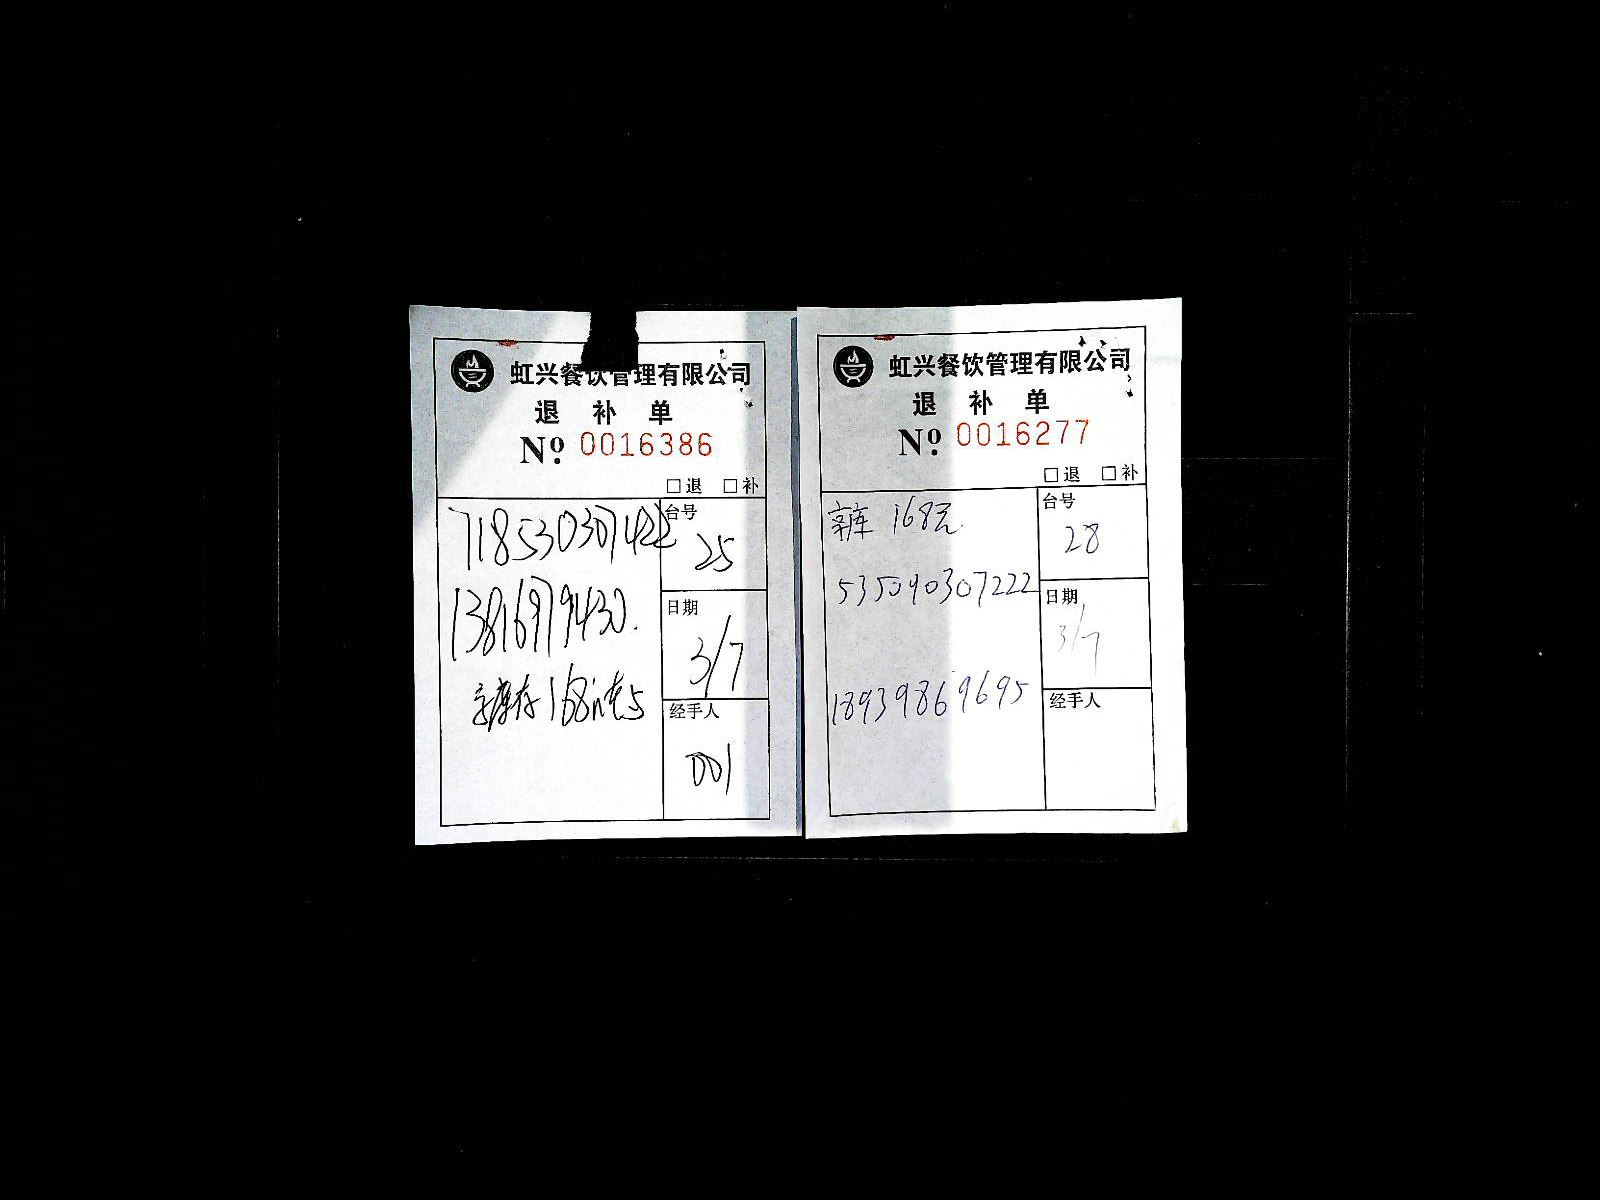 虹兴餐饮管理有限公司
退 补 单
Nº. 0016386
□退 □补
718530307422
台号
25
13816979430.
日期
3/7
168
经手人
001
虹兴餐饮管理有限公司
退 补 单
Nº. 0016277
□退 □补
168元.
台号
28
535090307222
日期
3/7
18939869695
经手人